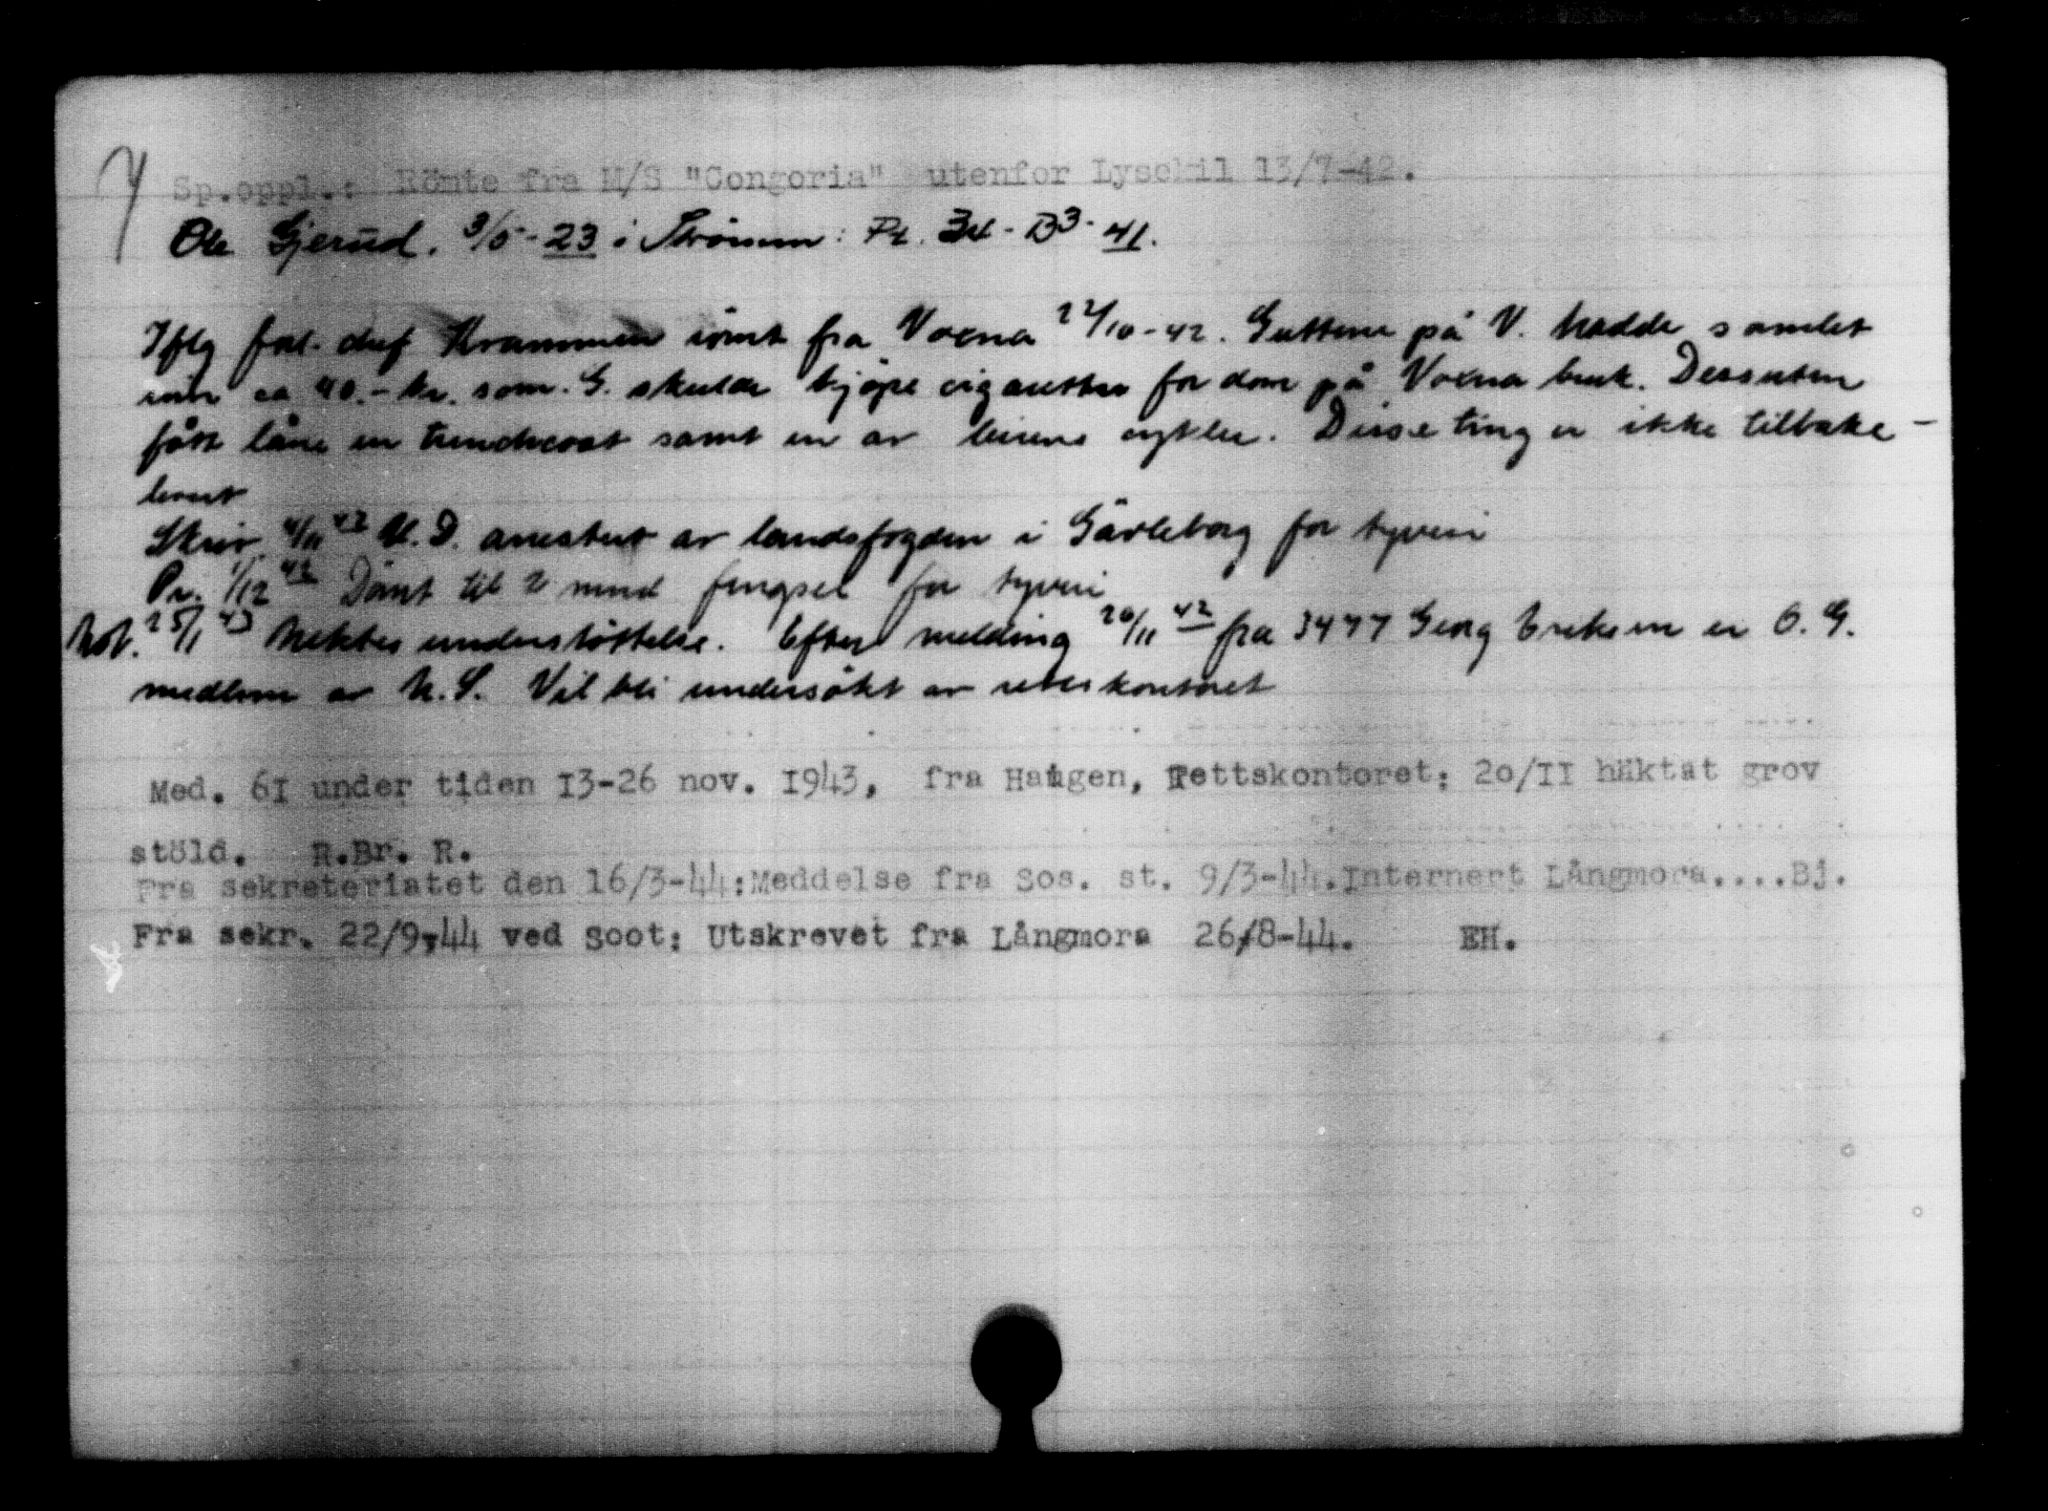 Sp.oppl.: Römte fra M/S "Congoria" utenfor Lysekil 13/7-42.
Ole Gjerud. 3/5-23 i Strömmen: Pt. 34-B3-41.
Iflg forl. chef Krammen römt fra Voxna 22/10-42. Guttene på V. hadde samlet
inn ca 40.- kr. som G. skulde kjöpe cigaretter for dem på Voxna bruk. Dessuten
fått låne en trenchcoat samt en av leirens sykler. Disse ting er ikke tilbake-
levert
Skriv. 4/11 42 U.D. arrestert av landsfogden i Gävleborg for tyveri
Pr. 1/12 42 Dömt til 2 mnd fengsel for tyveri
Not. 25/1 43 Nektes understöttelse. Efter melding 20/11 42 fra 3477 Georg Eriksen er O. G.
medlem av N.S. Vil bli undersökt av rettskontoret
Med. 61 under tiden 13-26 nov. 1943, fra Haugen, Rettskontoret: 20/11 häktat grov
stöld. R.Br. R.
Fra sekreteriatet den 16/3-44:Meddelse fra Sos. st. 9/3-44.Internert Långmora....Bj.
Fra sekr. 22/9-44 ved Soot: Utskrevet fra Långmora 26/8-44. EH.